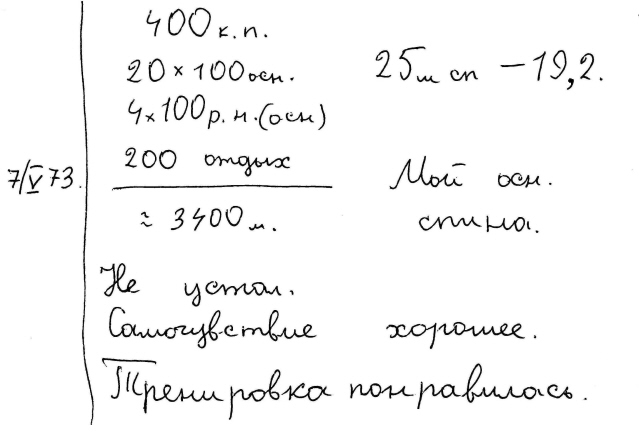 400 к.п.
20 × 100 осн.
25м сп – 19,2.
4 × 100 р. н. (осн)
200 отдых
7/V 73.
≈ 3400 м.
Мой осн.
спина.
Не устал.
Самочувствие хорошее.
Тренировка понравилась.